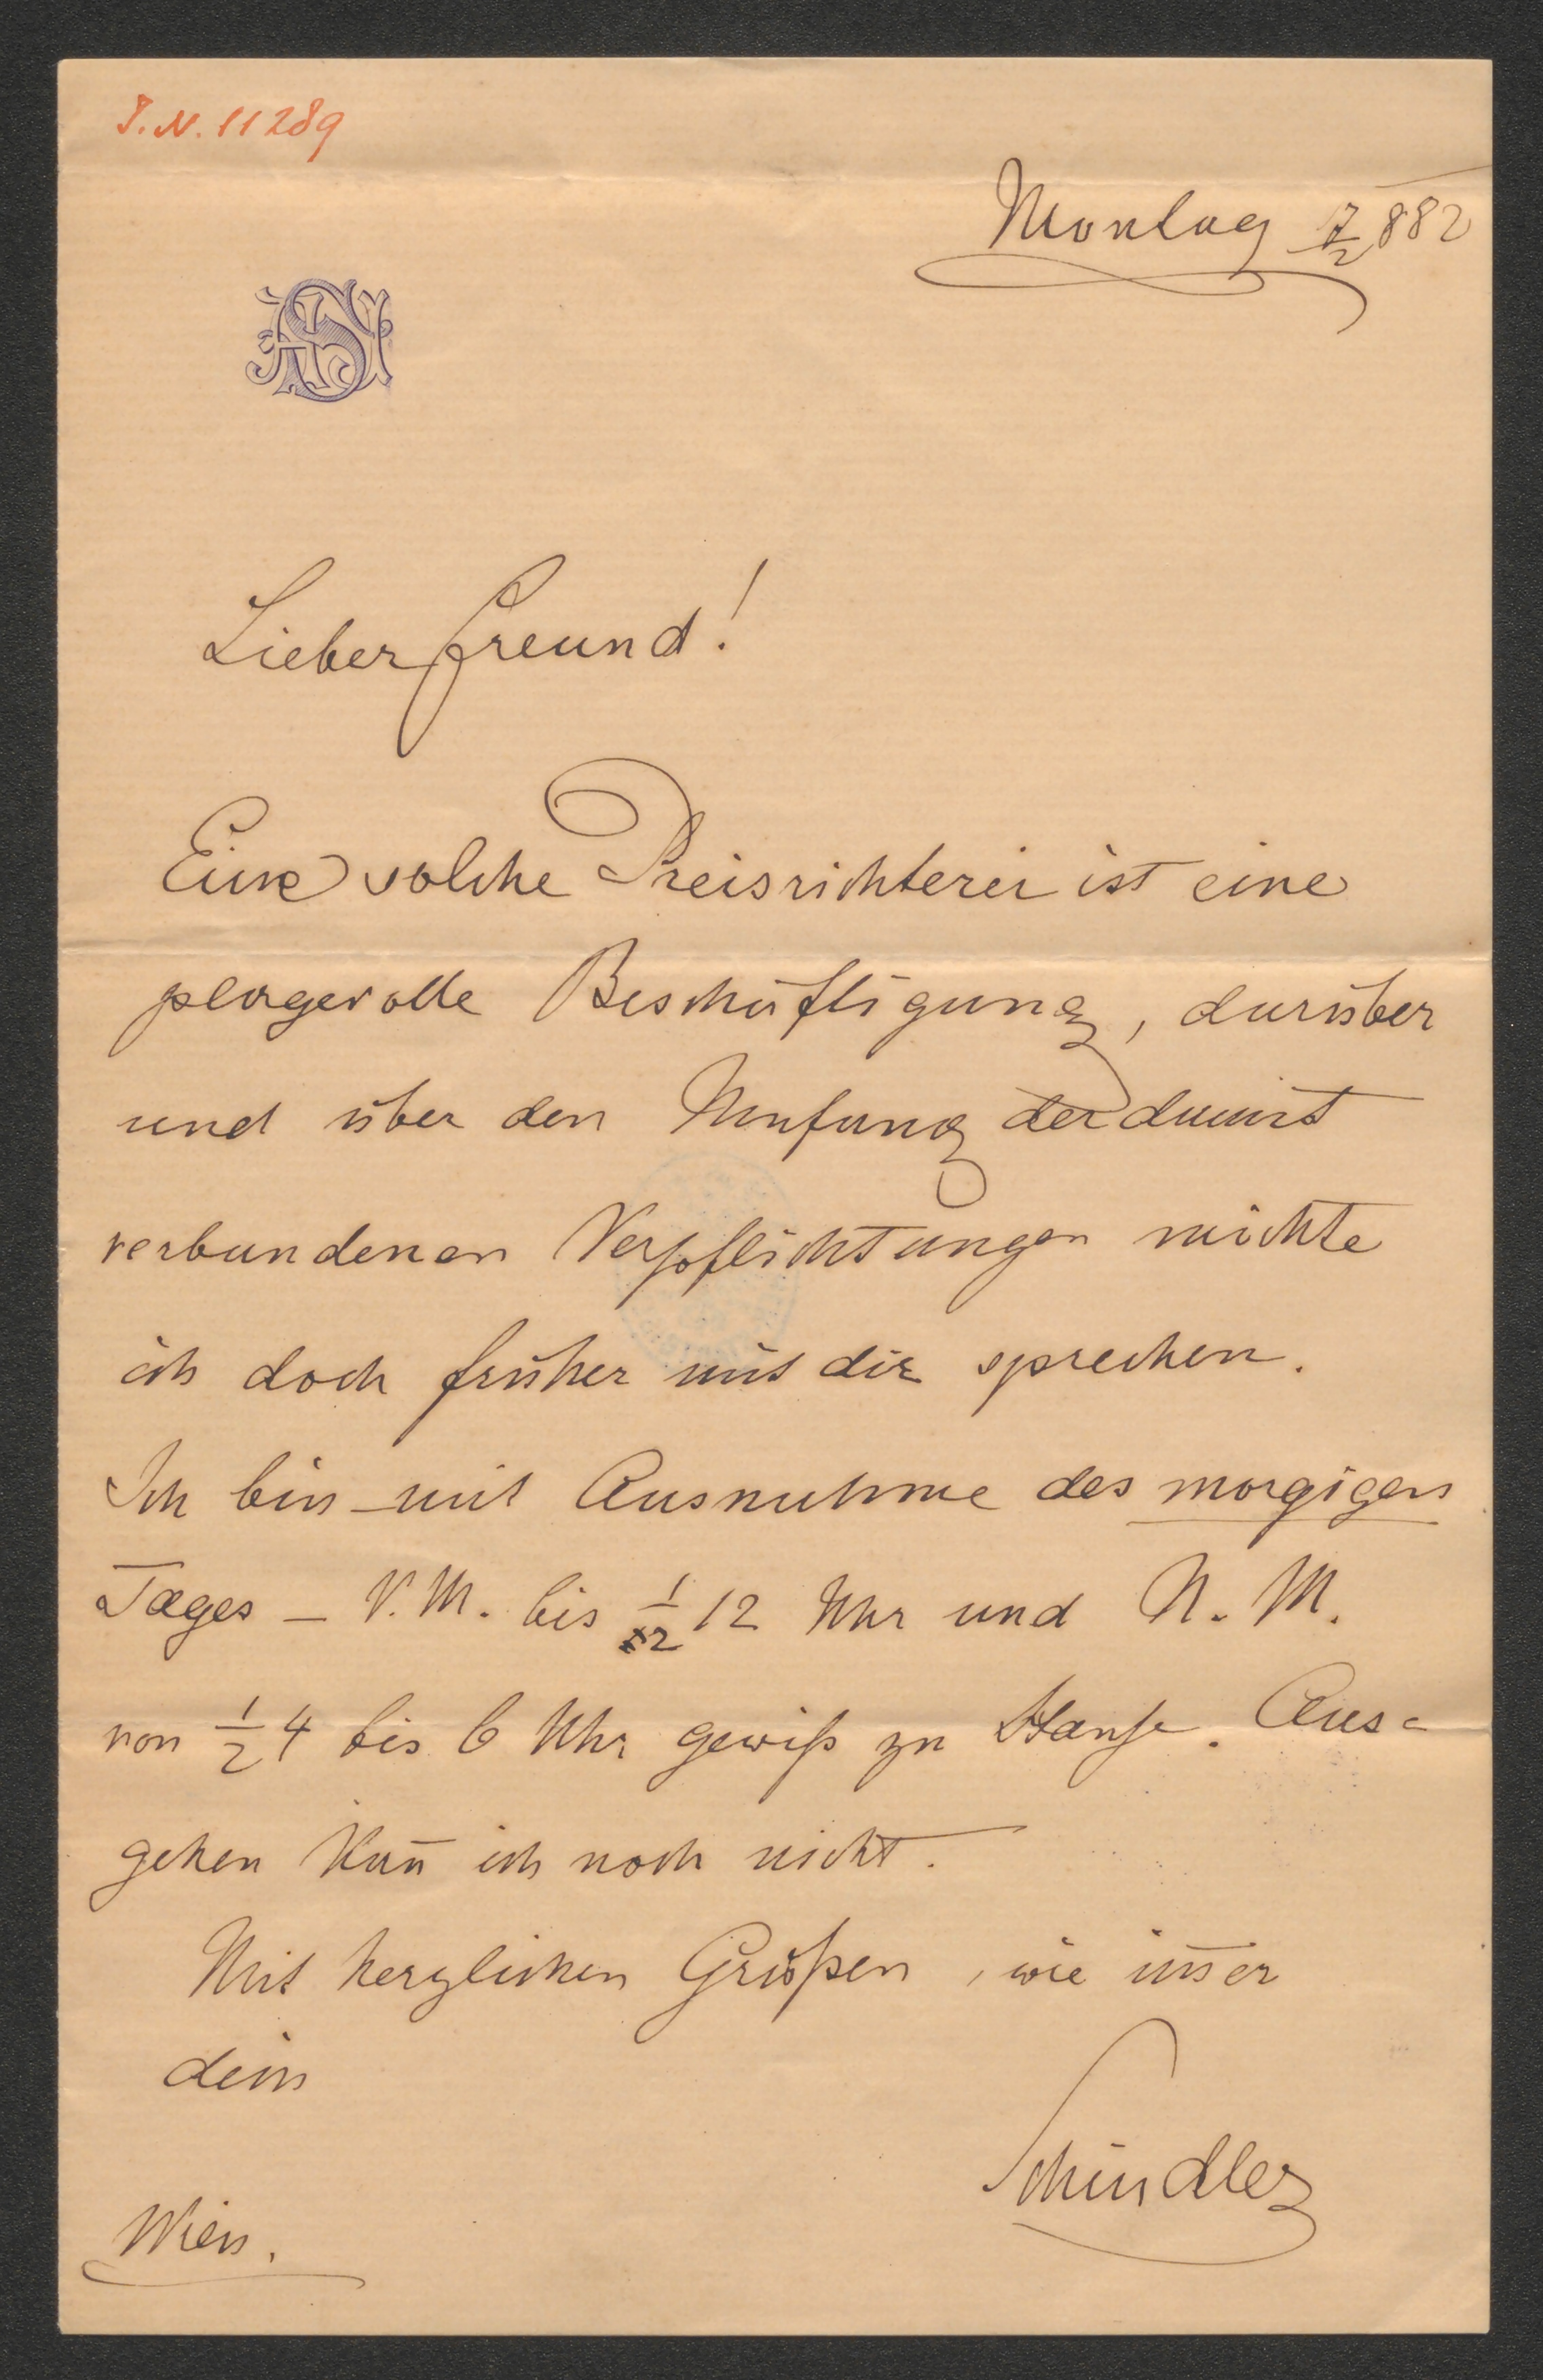 I.N. 11289
Montag 7/2 882
Lieber Freund!
Eine solche Preisrichterei ist eine
plagevolle Beschäftigung, darüber
und über den Umfang der damit
verbundenen Verpflichtungen möchte
ich doch früher mit dir sprechen.
Ich bin – mit Ausnahme des morgigen
Tages – V. M. bis 1/2 12 Uhr und N. M.
von 1/2 4 bis 6 Uhr gewiß zu Hause. Aus=
gehen kan̄ ich noch nicht.
Mit herzlichen Grüßen, wie im̄er
dein
Schindler
Wien.